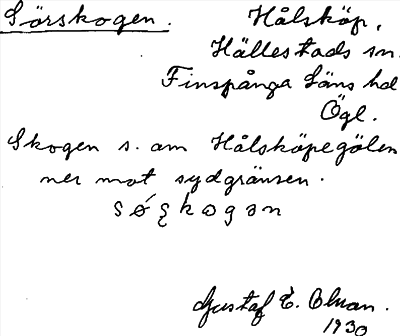 Sörskogen. Hålsköp,
Hällestads sn.
Finspånga Läns hd
Ögl.
Skogen s. om Hålsköpegölen
ner mot sydgränsen.
Gustaf E.
1930